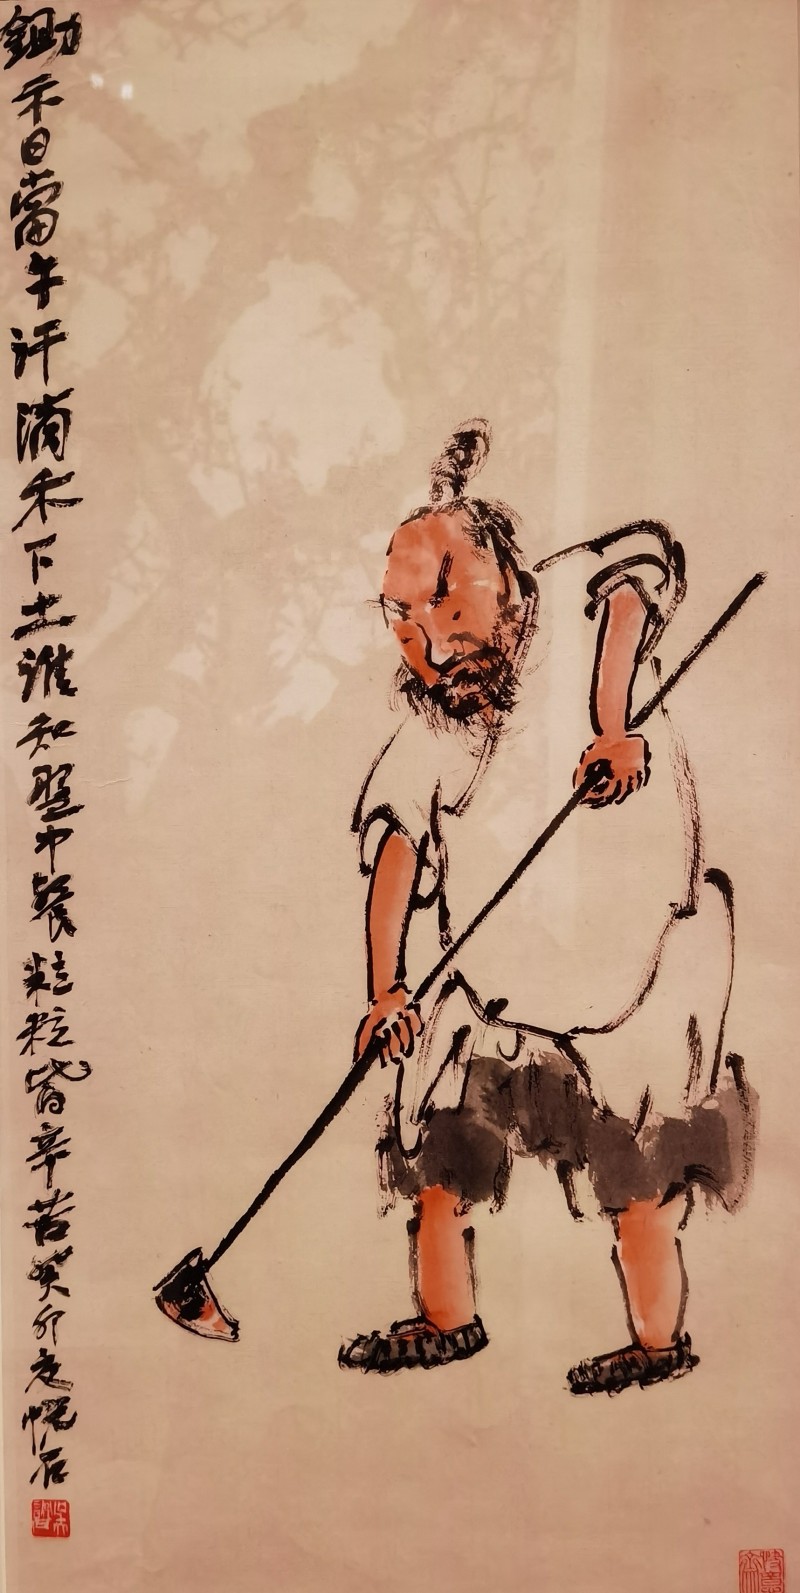 鋤禾日當午汗滴禾下土誰知盤中餐粒粒皆辛苦癸卯夏悦石